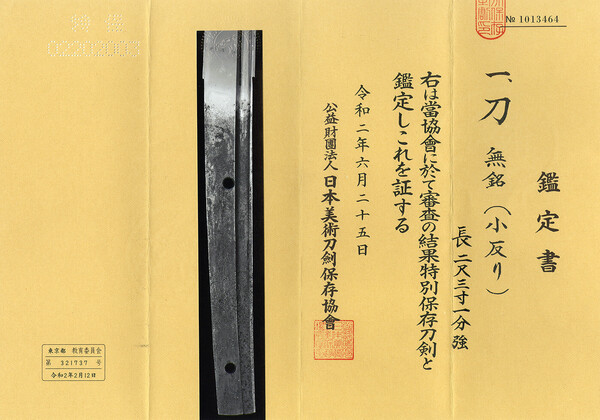 № 1013464
鑑定書
一、刀 無銘（小反り）
長 二尺三寸一分強
右は當協會に於て審査の結果特別保存刀剣と
鑑定しこれを証する
令和二年六月二十五日
公益財團法人 日本美術刀劍保存協會
東京都 教育委員会
第 321737 号
令和2年2月12日